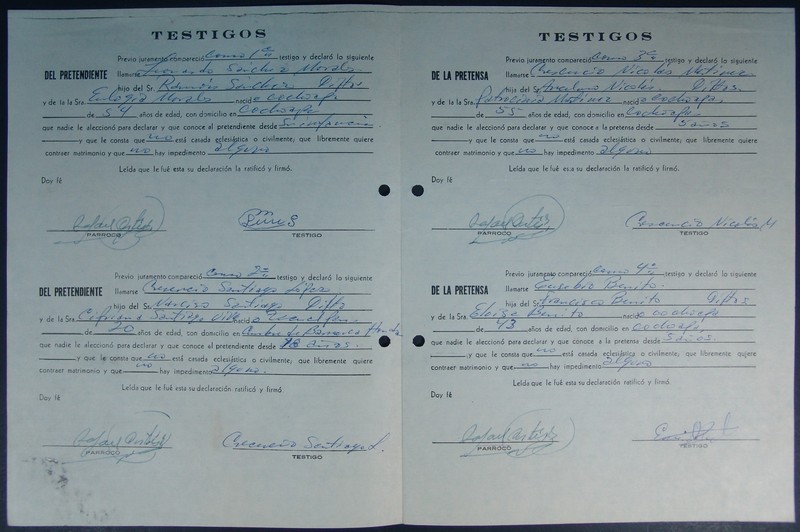 TESTIGOS
Previo juramento compareció Como 1o testigo y declaró lo siguiente
DEL PRETENDIENTE llamarse Leonardo Sánchez Morales
hijo del Sr. Ramón Sánchez Difto
y de la Sra. Eulogia Morales nació Cochoapa
de 54 años de edad, con domicilio en Cochoapa
que nadie le aleccionó para declarar y que conoce al pretendiente desde Su infancia
y que le consta que no está casada eclesiástica o civilmente; que libremente quiere
contraer matrimonio y que no hay impedimento alguno
Leída que le fué esta su declaración la ratificó y firmó.
Doy fé
PARROCO TESTIGO
Previo juramento compareció Como 2o testigo y declaró lo siguiente
DEL PRETENDIENTE llamarse Crecencio Santiago López
hijo del Sr. Narciso Santiago Difto
y de la Sra. Cipriana Santiago nació
de 20 años de edad, con domicilio en
que nadie le aleccionó para declarar y que conoce al pretendiente desde 18 años.
y que le consta que no está casada eclesiástica o civilmente; que libremente quiere
contraer matrimonio y que no hay impedimento alguno.
Leída que le fué esta su declaración la ratificó y firmó.
Doy fé
Crecencio Santiago L.
PARROCO TESTIGO
TESTIGOS
Previo juramento compareció Como 3o testigo y declaró lo siguiente
DE LA PRETENSA llamarse Crecencio Nicolás Motinez
hijo del Sr. Nicolás Diftos.
y de la Sra. Patrocinia Motinez nació Cochoapa
de 55 años de edad, con domicilio en Cochoapa
que nadie le aleccionó para declarar y que conoce a la pretensa desde 5 años
y que le consta que no está casada eclesiástica o civilmente; que libremente quiere
contraer matrimonio y que no hay impedimento alguno
Leída que le fué esta su declaración la ratificó y firmó.
Doy fé
Crecencio Nicolás M
PARROCO TESTIGO
Previo juramento compareció Como 4o testigo y declaró lo siguiente
DE LA PRETENSA llamarse Eusebio Benito
hijo del Sr. Francisco Benito Diftos
y de la Sra. Eloisa Benito nació Cochoapa
de 43 años de edad, con domicilio en Cochoapa
que nadie le aleccionó para declarar y que conoce a la pretensa desde 5 años
y que le consta que no está casada eclesiástica o civilmente; que libremente quiere
contraer matrimonio y que no hay impedimento alguno
Leída que le fué esta su declaración la ratificó y firmó.
Doy fé
PARROCO TESTIGO